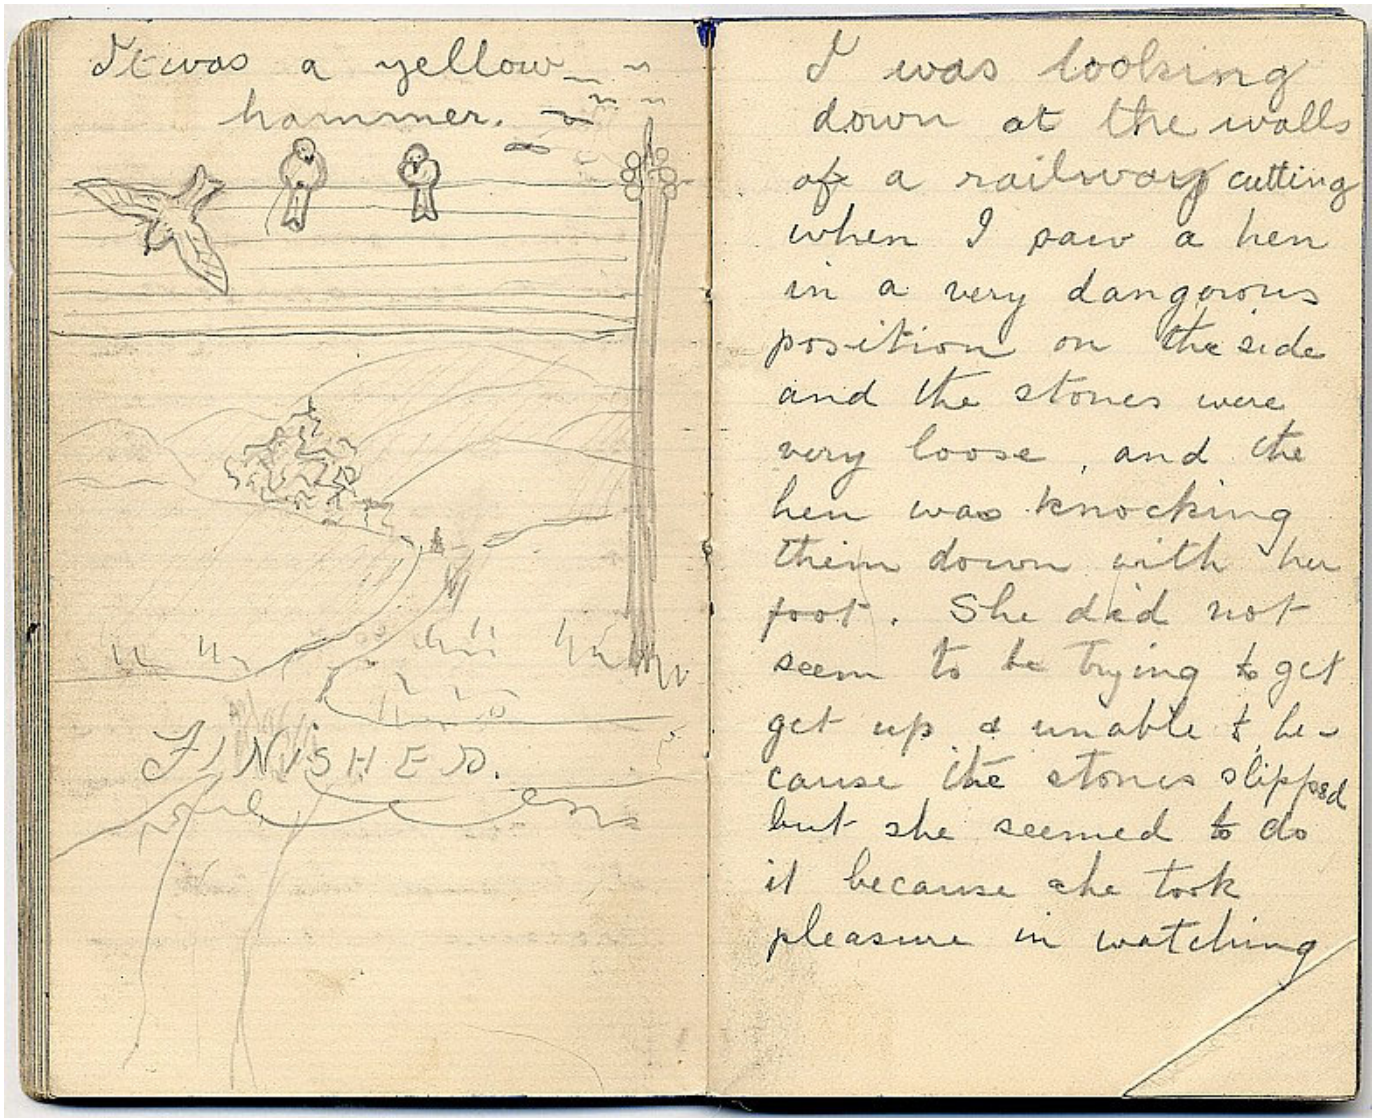 It was a yellow
hammer.
FINISHED.
I was looking
down at the walls
of a railway cutting
when I saw a hen
in a very dangorous
position on the side
and the stones were
very loose, and the
hen was knocking
them down with her
foot. She did not
seem to be trying to get
get up & unable t be-
cause the stones slipped
but she seemed to do
it because she took
pleasure in watching